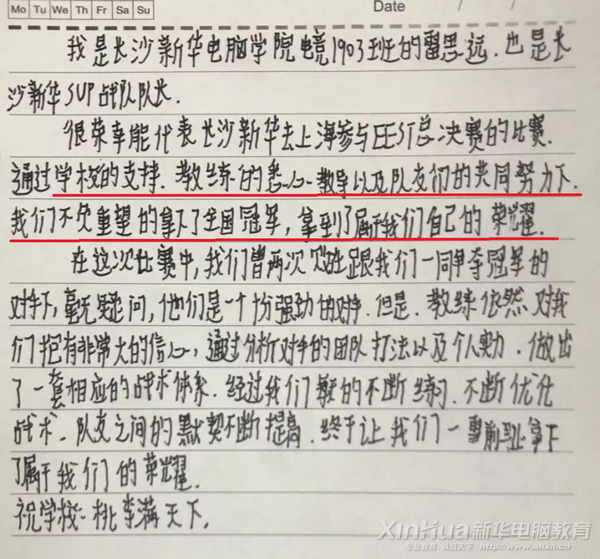 Mo Tu We Th Fr Sa Su Date / /
我是长沙新华电脑学院电竞1903班的雷思远.也是长
沙新华SUP战队队长.
很荣幸能代表长沙新华去上海参与EEST总决赛的比赛.
通过学校的支持.教练的悉心教导以及队友们的共同努力下.
我们不负重望的拿下了全国冠军,拿到了属于我们自己的荣耀.
在这次比赛中,我们曾两次败在跟我们一同争夺冠军的
对手下,毫无疑问,他们是一个十分强劲的对手.但是.教练依然对我
们抱有非常大的信心,通过分析对手的团队打法以及个人实力.做出
了一套相应的战术体系.经过我们的不断练习.不断优化
战术.队友之间的默契不断提高.终于让我们一雪前耻拿下
了属于我们的荣耀.
祝学校桃李满天下.
XinHua新华电脑教育
专业教育 诚信天下 www.xhxn.cn